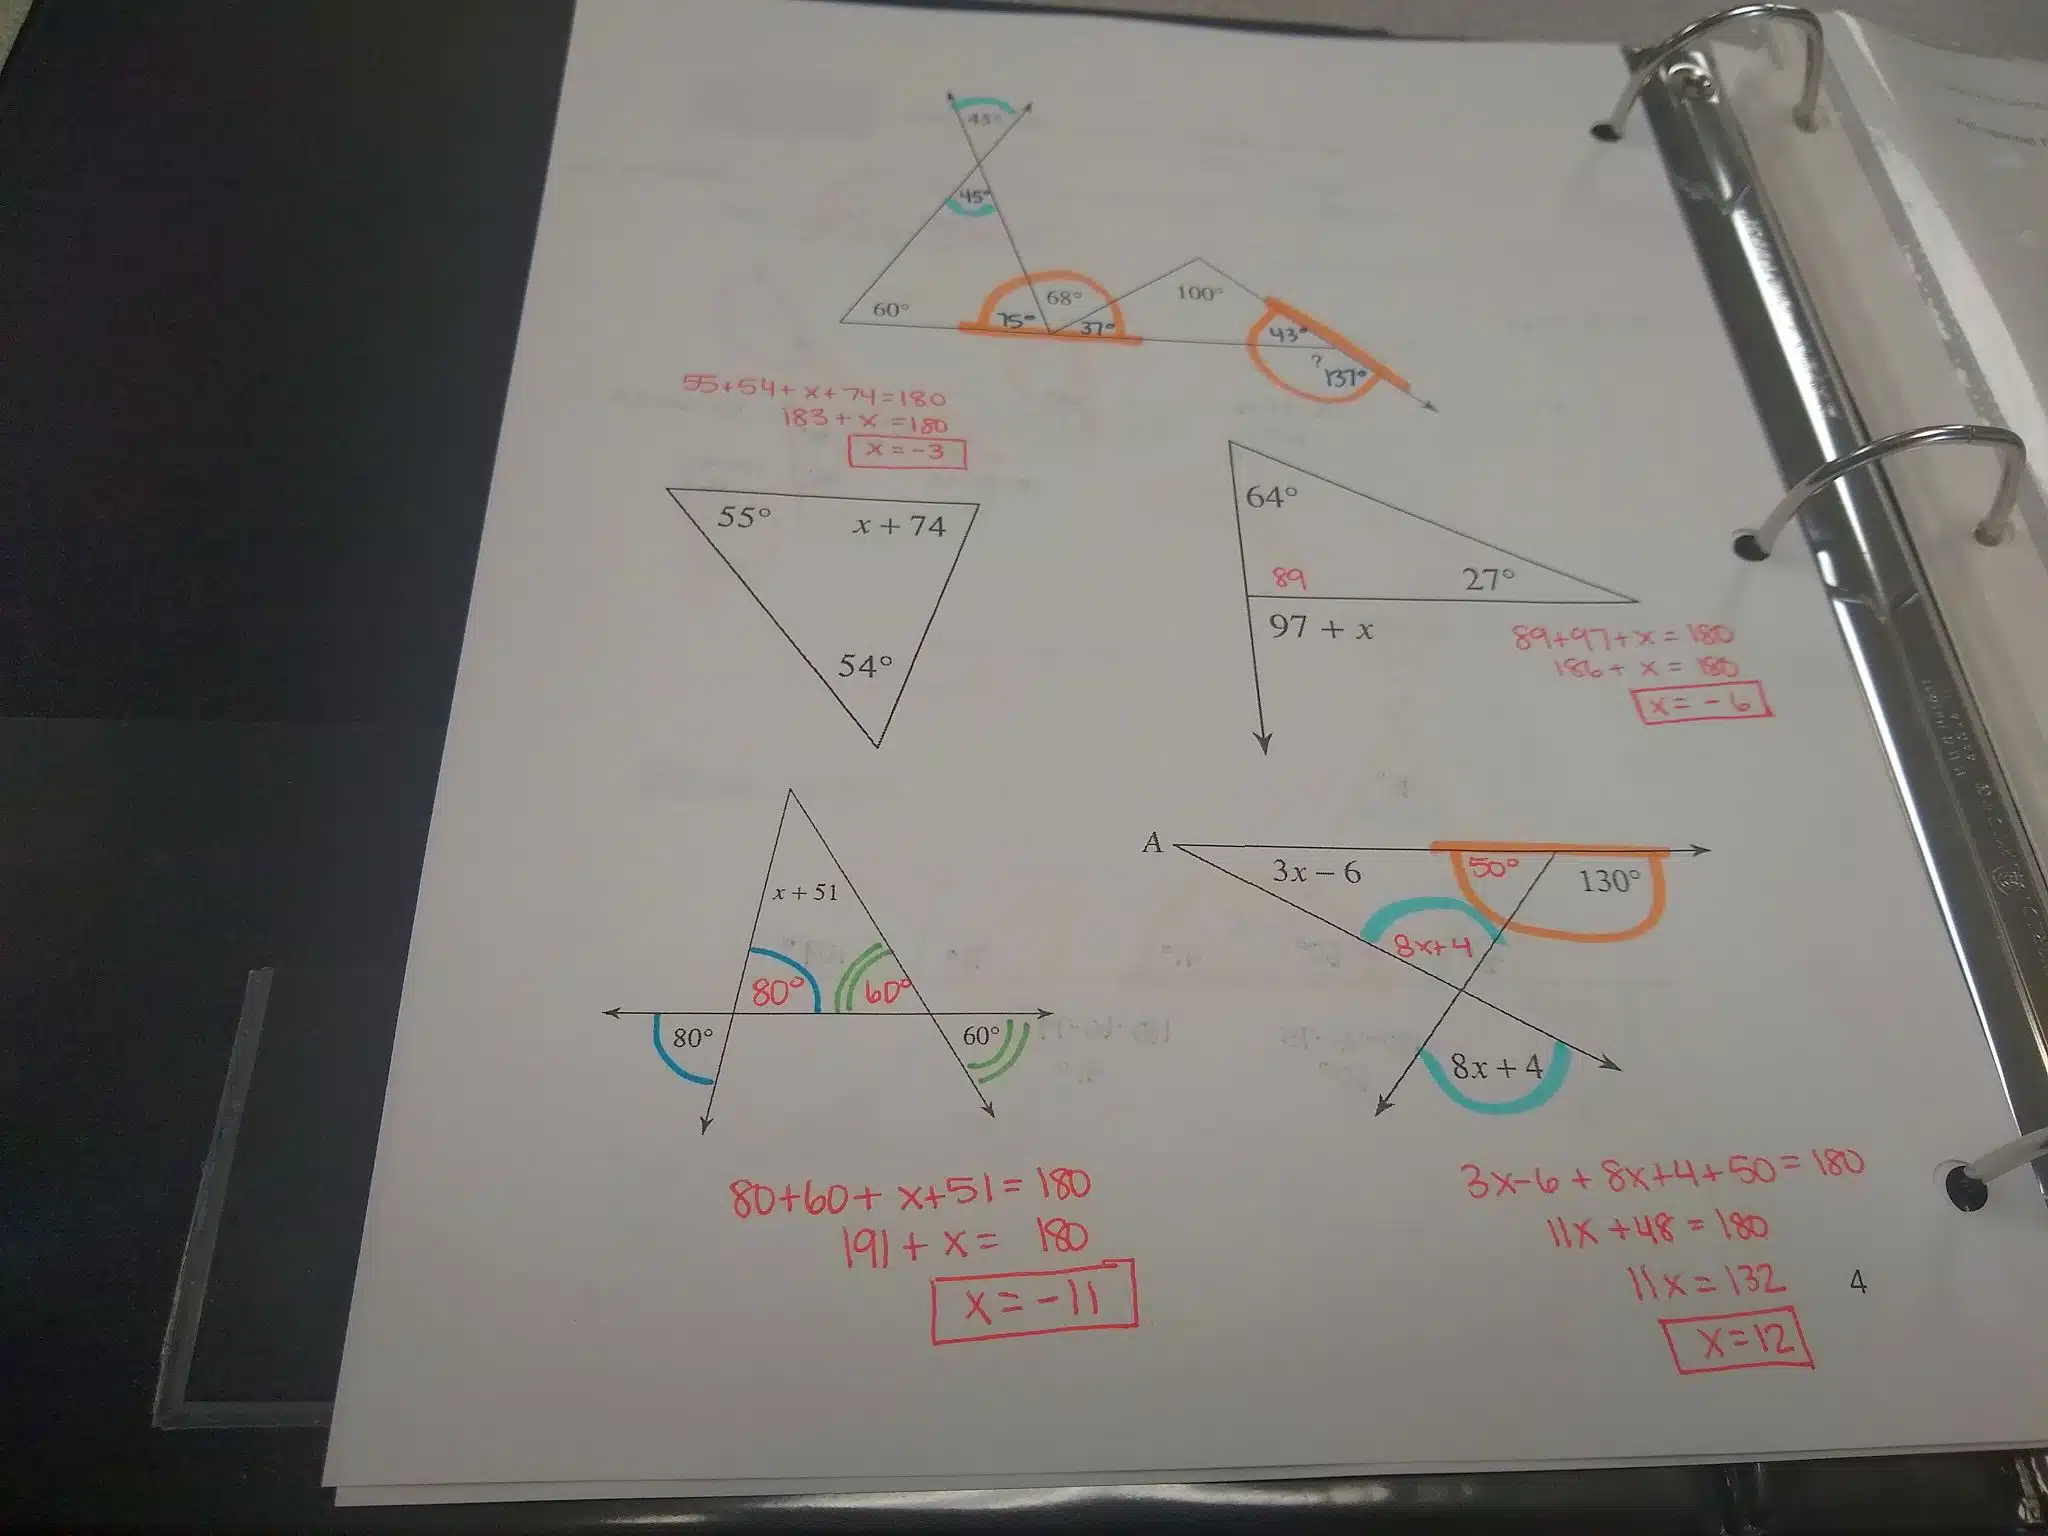 45°
45°
60°
75°
68°
37°
100°
43°
?
137°
55+54+x+74=180
183+x=180
x=-3
55°
x + 74
54°
64°
89
27°
97 + x
89+97+x=180
186+x=180
x=-6
x + 51
80°
60°
80°
60°
80+60+x+51=180
191+x=180
x=-11
A
3x – 6
50°
130°
8x+4
8x + 4
3x-6+8x+4+50=180
11x+48=180
11x=132
x=12
4